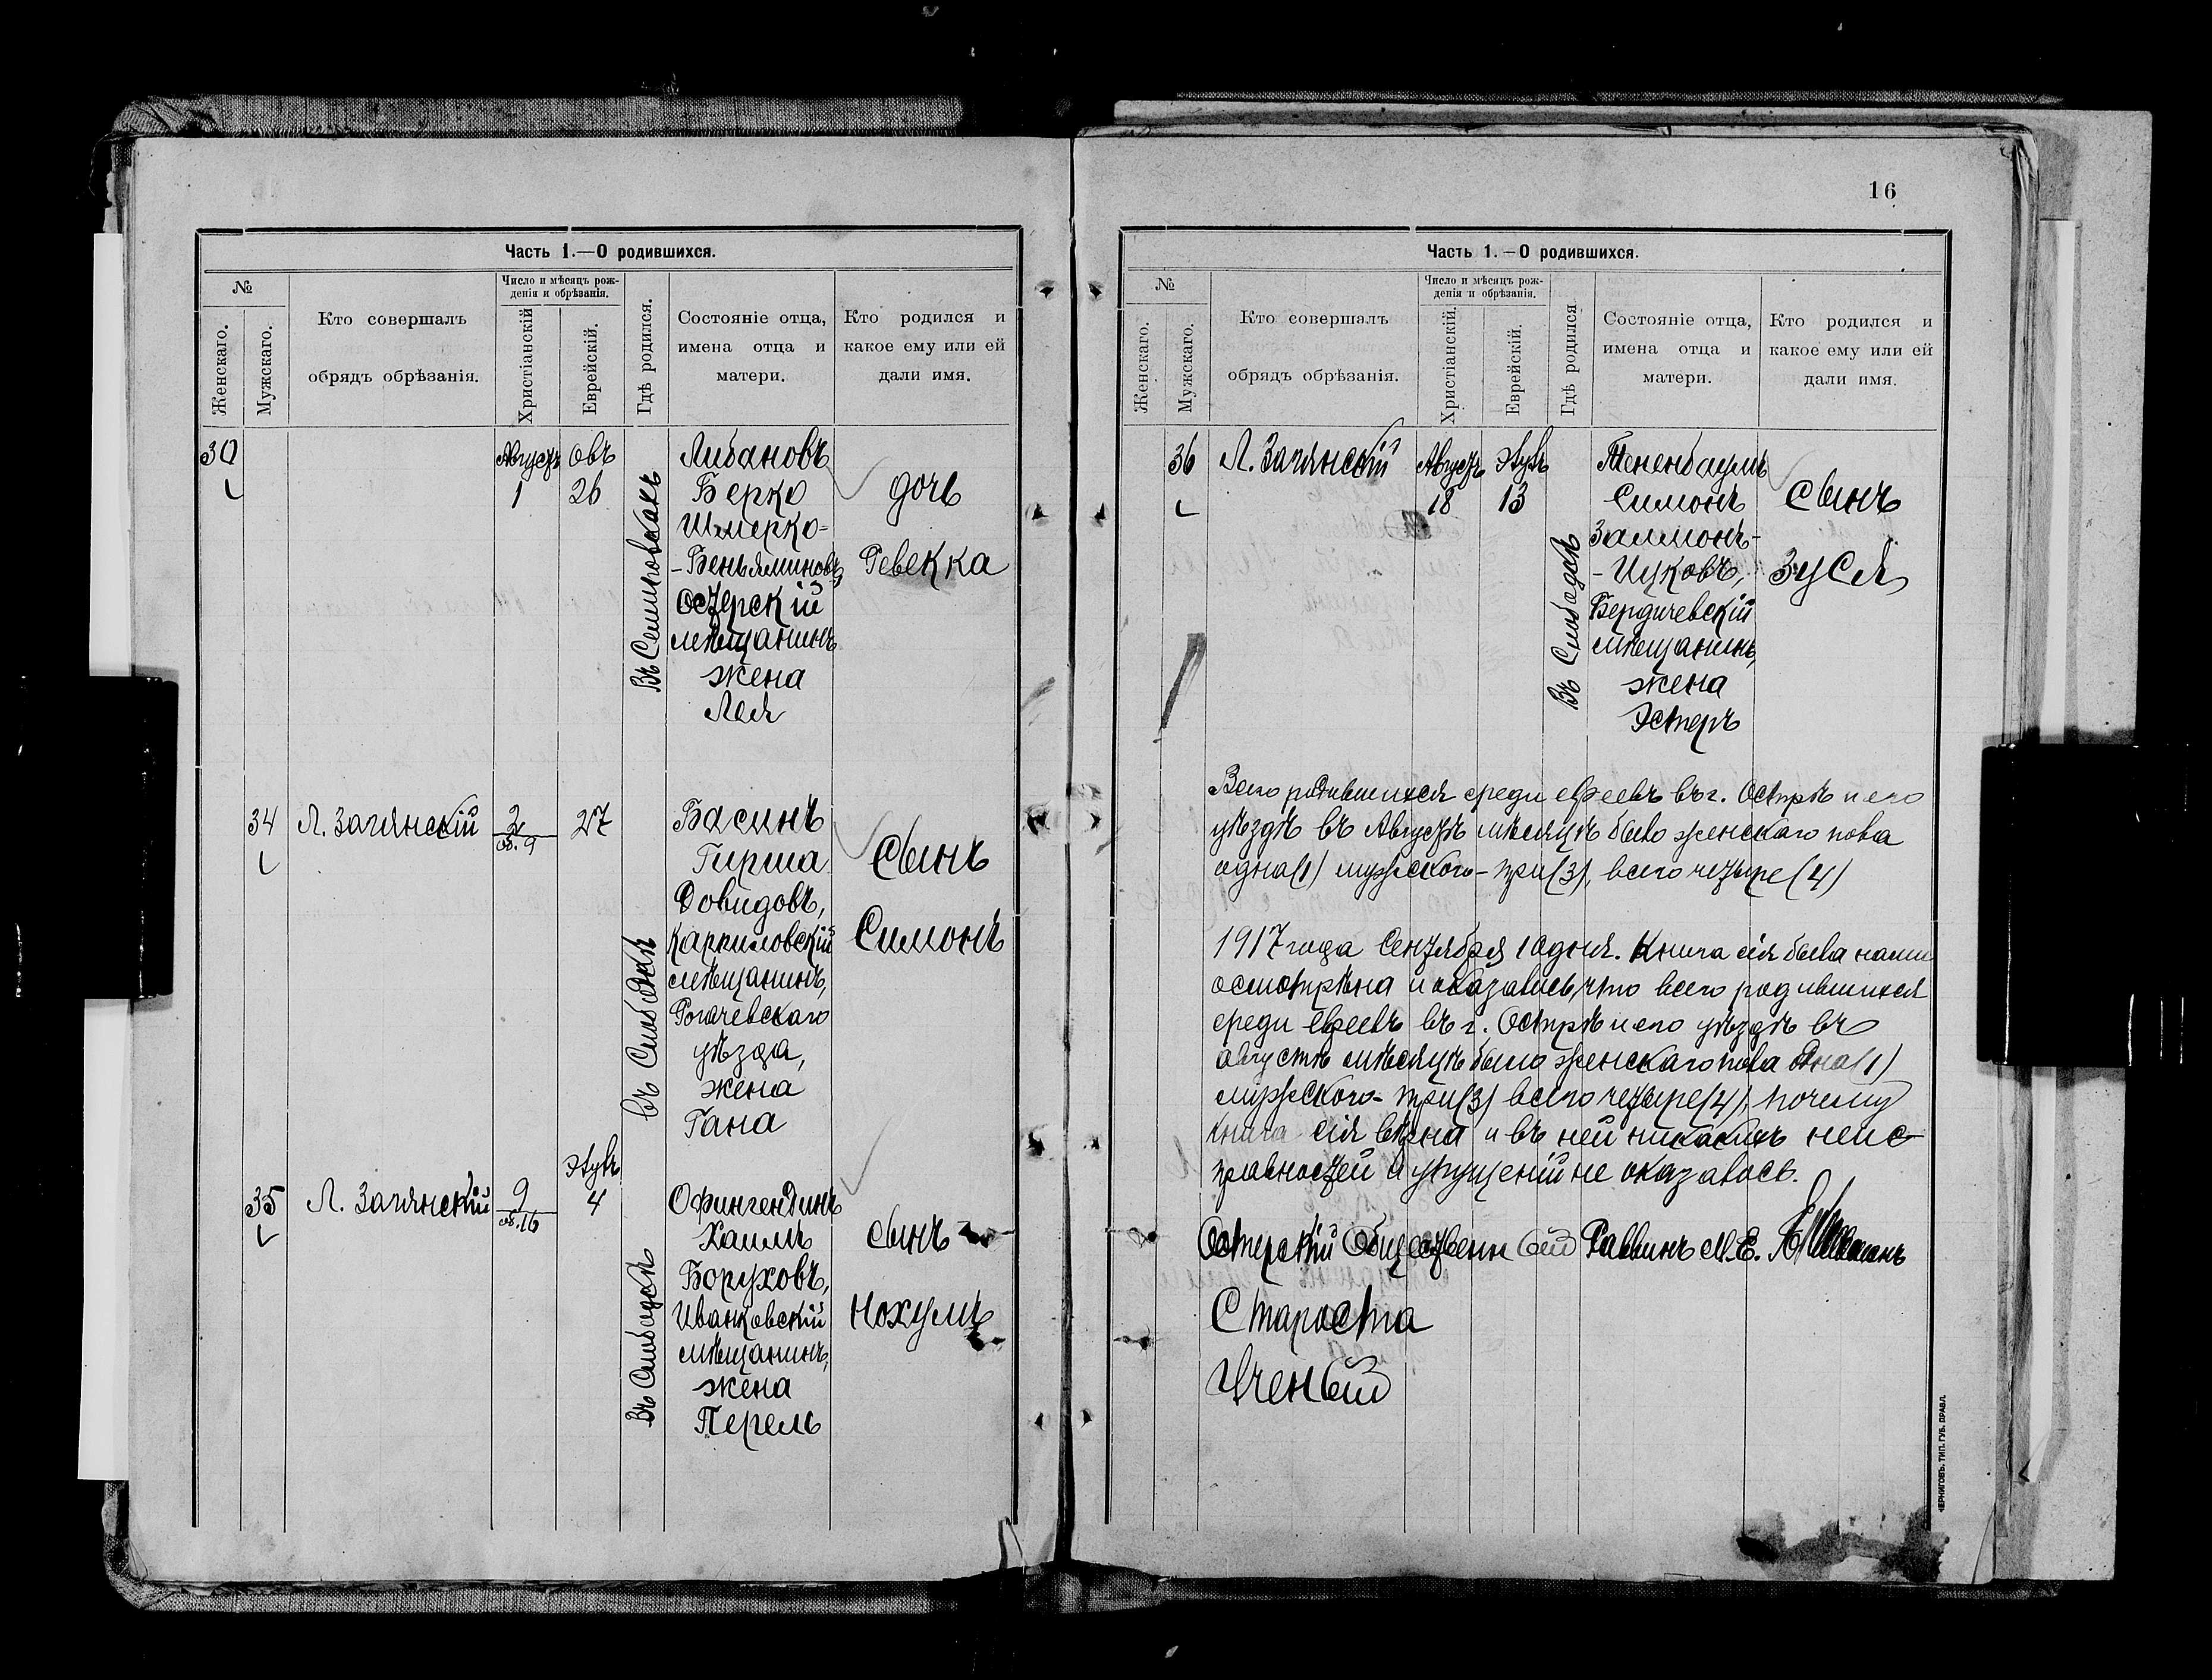 Часть 1.—О родившихся.
№
Женскаго.
Мужскаго.
Кто совершалъ
обрядъ обрѣзанія.
Число и мѣсяцъ рож-
денія и обрѣзанія.
Христіанскій
Еврейскій.
Гдѣ родился.
Состояніе отца,
имена отца и
матери.
Кто родился и
какое ему или ей
дали имя.
30
Августъ
1
Овъ
26
Въ Семиповкахъ
Либановъ
Берко
Шмерко-
-Беньяминовъ,
Остерскій
мѣщанинъ
жена
Лея
дочь
Ревекка
34
Л. Загянскій
2
об. 9
27
въ Слободкѣ
Басинъ
Гирша
Довидовъ,
Карпиловскій
мѣщанинъ,
Рогачевскаго
уѣзда,
жена
Гана
сынъ
Симонъ
35
Л. Загянскій
9
об. 16
Элулъ
4
Въ Слободкѣ
Офингендинъ
Хаимъ
Боруховъ,
Иванковскій
мѣщанинъ,
жена
Перель
сынъ
Нохумъ
16
Часть 1.—О родившихся.
№
Женскаго.
Мужскаго.
Кто совершалъ
обрядъ обрѣзанія.
Число и мѣсяцъ рож-
денія и обрѣзанія.
Христіанскій.
Еврейскій.
Гдѣ родился
Состояніе отца,
имена отца и
матери.
Кто родился и
какое ему или ей
дали имя.
36
Л. Загянскій
Августъ
18
Элулъ
13
Въ Слободкѣ
Тененбаумъ
Симонъ
Залмонъ-
-Ицковъ,
Бердичевскій
мѣщанинъ,
жена
Эстеръ
сынъ
Зуся
Всего родившихся среди евреевъ въ г. Острѣ и его
уѣздѣ въ Августѣ мѣсяцѣ было женскаго пола
одна (1) мужского - три (3), всего четыре (4)
1917 года Сентября 1 одня. Книга сія была нами
осмотрѣна и оказалось, что всего родившихся
среди евреевъ въ г. Острѣ и его уѣздѣ въ
августѣ мѣсяцѣ было женскаго пола одна (1)
мужского - три (3) всего четыре (4), почему
книга сія вѣрна и въ ней никакихъ неис-
правностей и упущеній не оказалось.
Остерскій Общественный Раввинъ М. Е.
Староста
Ученый
ЧЕРНИГОВЪ. ТИП. ГУБ. ПРАВЛ.